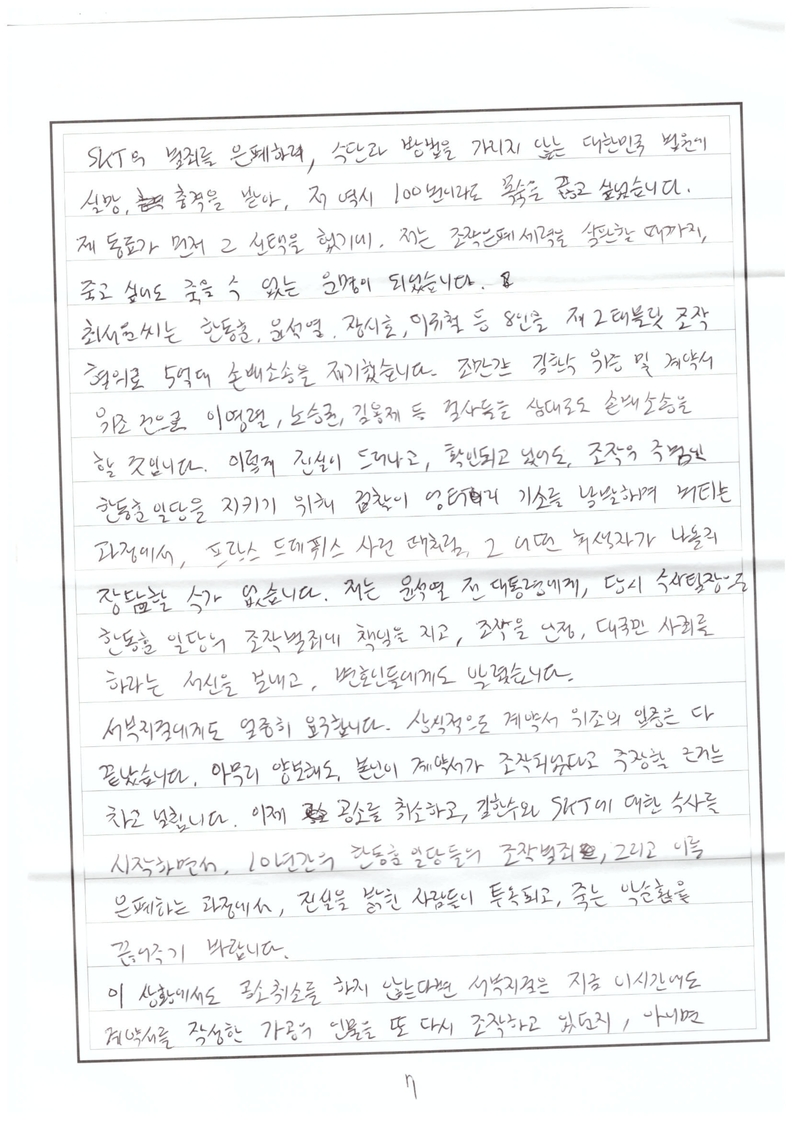 SKT의 범죄를 은폐하려, 수단과 방법을 가리지 않는 대한민국 법원에
실망, 충격을 받아, 저 역시 100번이라도 목숨을 끊고 싶었습니다.
제 동료가 먼저 그 선택을 했기에, 저는 조작은폐세력을 심판할 때까지,
죽고 싶어도 죽을 수 없는 운명이 되었습니다.
최서원씨는 한동훈, 윤석열, 장시호, 이규철 등 8인을 제2태블릿 조작
혐의로 5억대 손배소송을 제기했습니다. 조만간 김한수 위증 및 계약서
위조 건으로 이영렬, 노승권, 김용제 등 검사들을 상대로도 손배소송을
할 것입니다. 이렇게 진실이 드러나고, 확인되고 있어도, 조작의 주범인
한동훈 일당을 지키기 위해 검찰이 엉터리 기소를 남발하며 버티는
과정에서, 프랑스 드레퓌스 사건 때처럼, 그 어떤 희생자가 나올지
장담할 수가 없습니다. 저는 윤석열 전 대통령에게, 당시 수사팀장으로
한동훈 일당의 조작범죄에 책임을 지고, 조작을 인정, 대국민 사회를
하라는 서신을 보내고, 변호인들에게도 알렸습니다.
서부지검에게도 엄중히 요구합니다. 상식적으로 계약서 위조의 입증은 다
끝났습니다. 아무리 양보해도, 본인이 계약서가 조작되었다고 주장할 근거는
차고 넘칩니다. 이제 공소를 취소하고, 김한수와 SKT에 대한 수사를
시작하면서, 10년간의 한동훈 일당들의 조작범죄, 그리고 이를
은폐하는 과정에서, 진실을 밝힌 사람들이 투옥되고, 죽는 악순환을
끊어주기 바랍니다.
이 상황에서도 공소취소를 하지 않는다면 서부지검은 지금 이시간에도
계약서를 작성한 가공의 인물을 또 다시 조작하고 있던지, 아니면
7